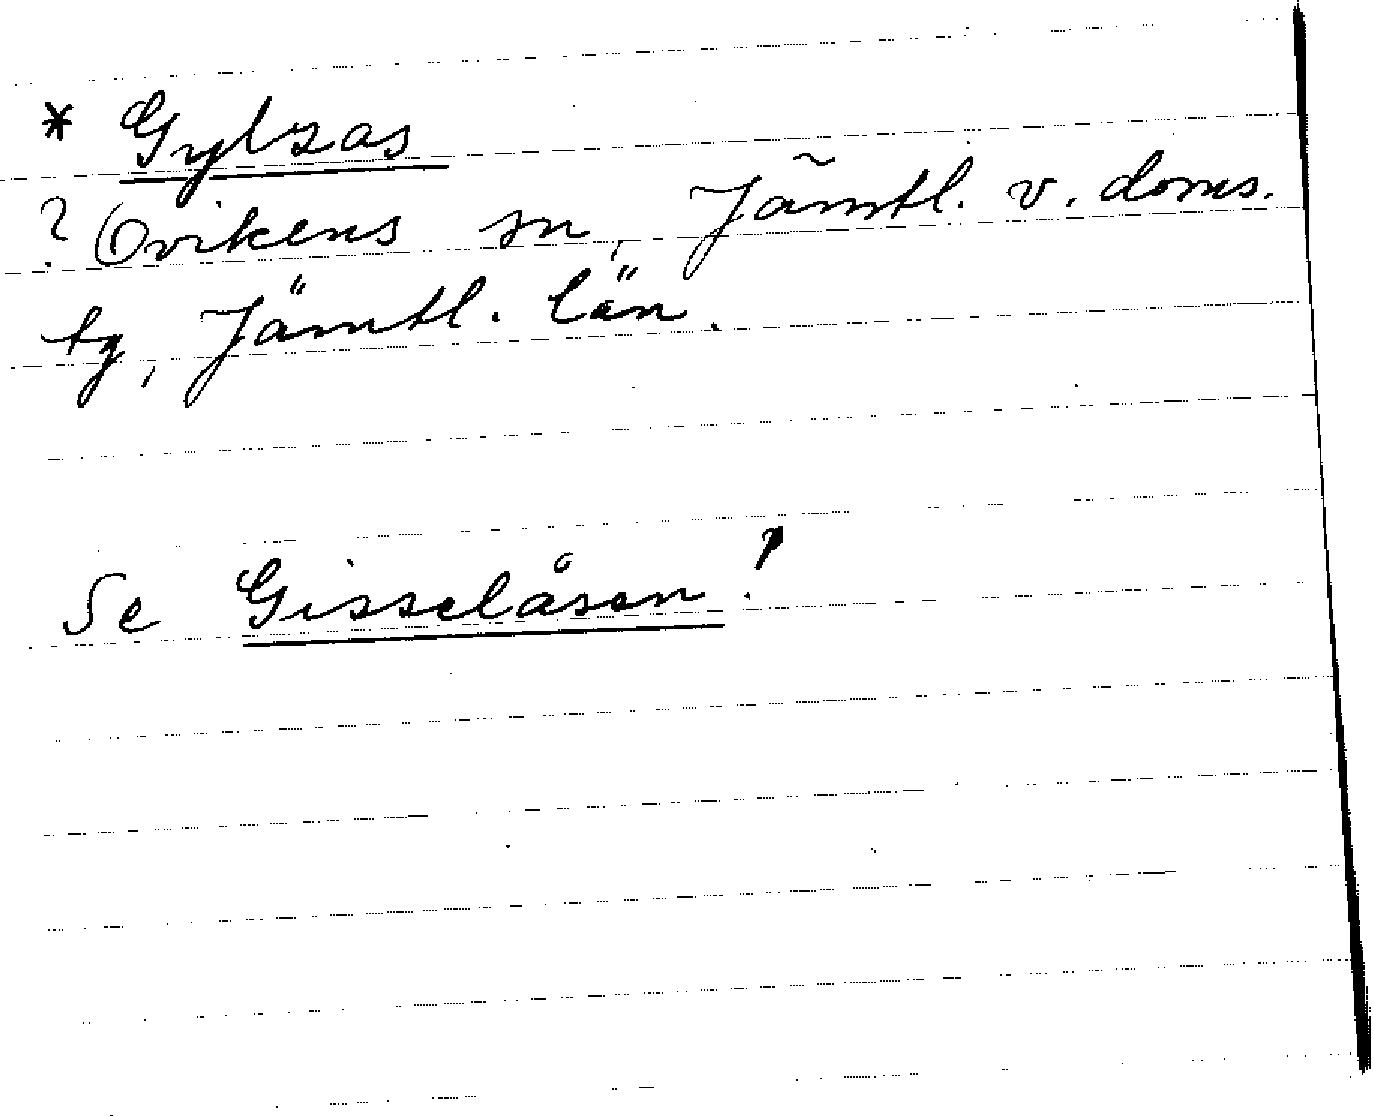 * Gylsas
? Ovikens sn, Jämtl. v. doms.
tg, Jämtl. län.
Se Gisselåsen!